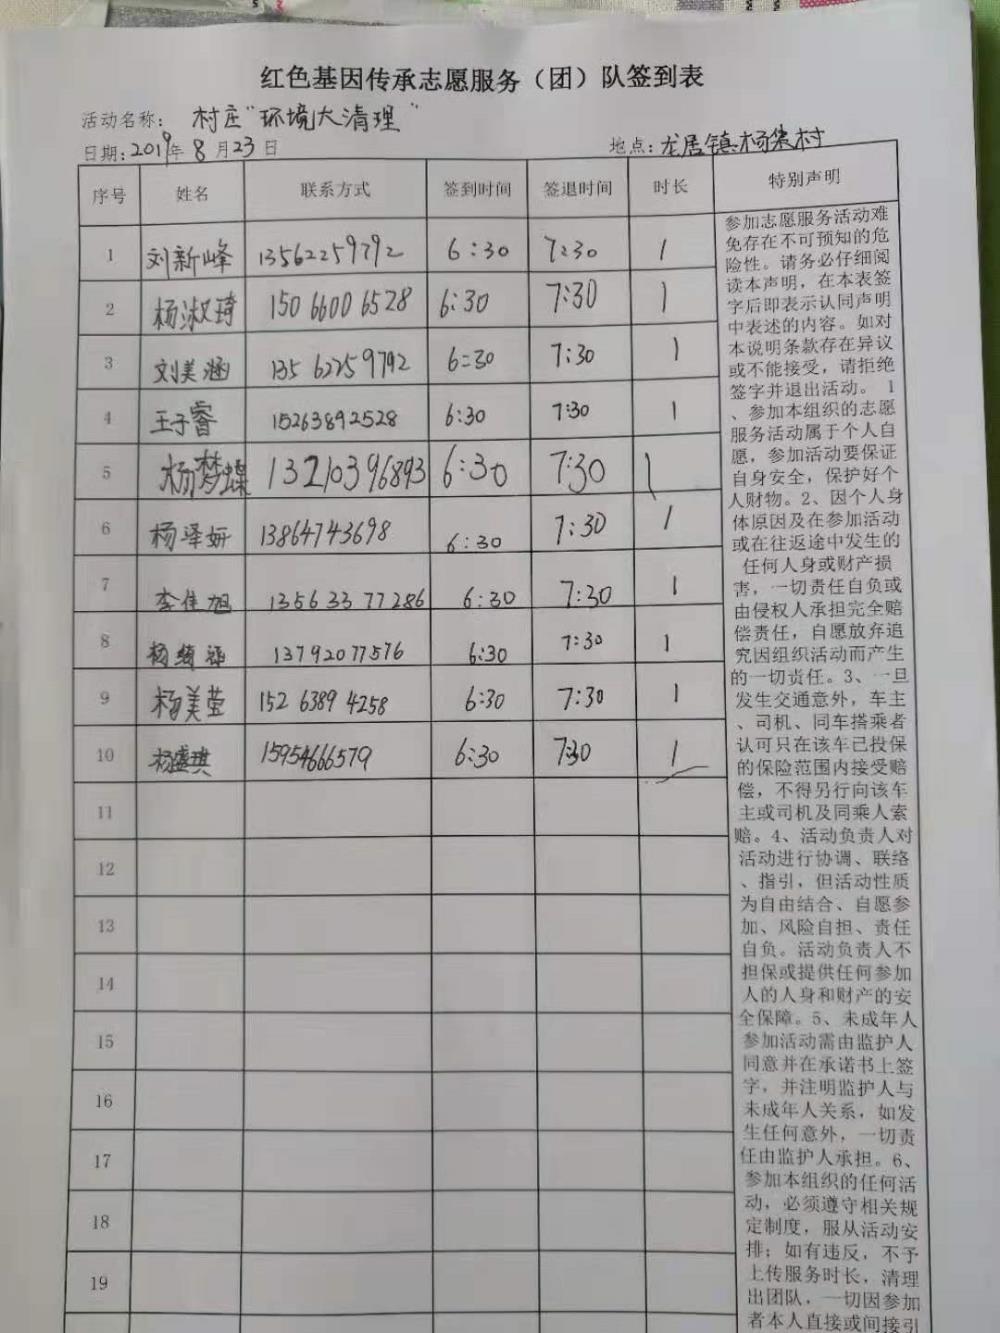 红色基因传承志愿服务（团）队签到表
活动名称： 村庄"环境大清理"
日期：2019年 8 月 23 日 地点：龙居镇杨集村
序号 姓名 联系方式 签到时间 签退时间 时长 特别声明
1 刘新峰 13562259792 6:30 7:30 1
2 杨淑琦 150 6600 6528 6:30 7:30 1
3 刘美涵 135 62259792 6:30 7:30 1
4 王子睿 15263892528 6:30 7:30 1
5 杨梦蝶 13210396893 6:30 7:30 1
6 杨泽妍 13864743698 6:30 7:30 1
7 李佳旭 13563377286 6:30 7:30 1
8 杨 13792077576 6:30 7:30 1
9 杨美莹 152 6389 4258 6:30 7:30 1
10 杨盛琪 15954666579 6:30 7:30 1
11
12
13
14
15
16
17
18
19
参加志愿服务活动难
免存在不可预知的危
险性。请务必仔细阅
读本声明，在本表签
字后即表示认同声明
中表述的内容。如对
本说明条款存在异议
或不能接受，请拒绝
签字并退出活动。 1
、参加本组织的志愿
服务活动属于个人自
愿，参加活动要保证
自身安全，保护好个
人财物。2、因个人身
体原因及在参加活动
或在往返途中发生的
任何人身或财产损
害，一切责任自负或
由侵权人承担完全赔
偿责任，自愿放弃追
究因组织活动而产生
的一切责任。3、一旦
发生交通意外，车主
、司机、同车搭乘者
认可只在该车已投保
的保险范围内接受赔
偿，不得另行向该车
主或司机及同乘人索
赔。4、活动负责人对
活动进行协调、联络
、指引，但活动性质
为自由结合、自愿参
加、风险自担、责任
自负。活动负责人不
担保或提供任何参加
人的人身和财产的安
全保障。5、未成年人
参加活动需由监护人
同意并在承诺书上签
字，并注明监护人与
未成年人关系，如发
生任何意外，一切责
任由监护人承担。6、
参加本组织的任何活
动，必须遵守相关规
定制度，服从活动安
排；如有违反，不予
上传服务时长，清理
出团队，一切因参加
者本人直接或间接引